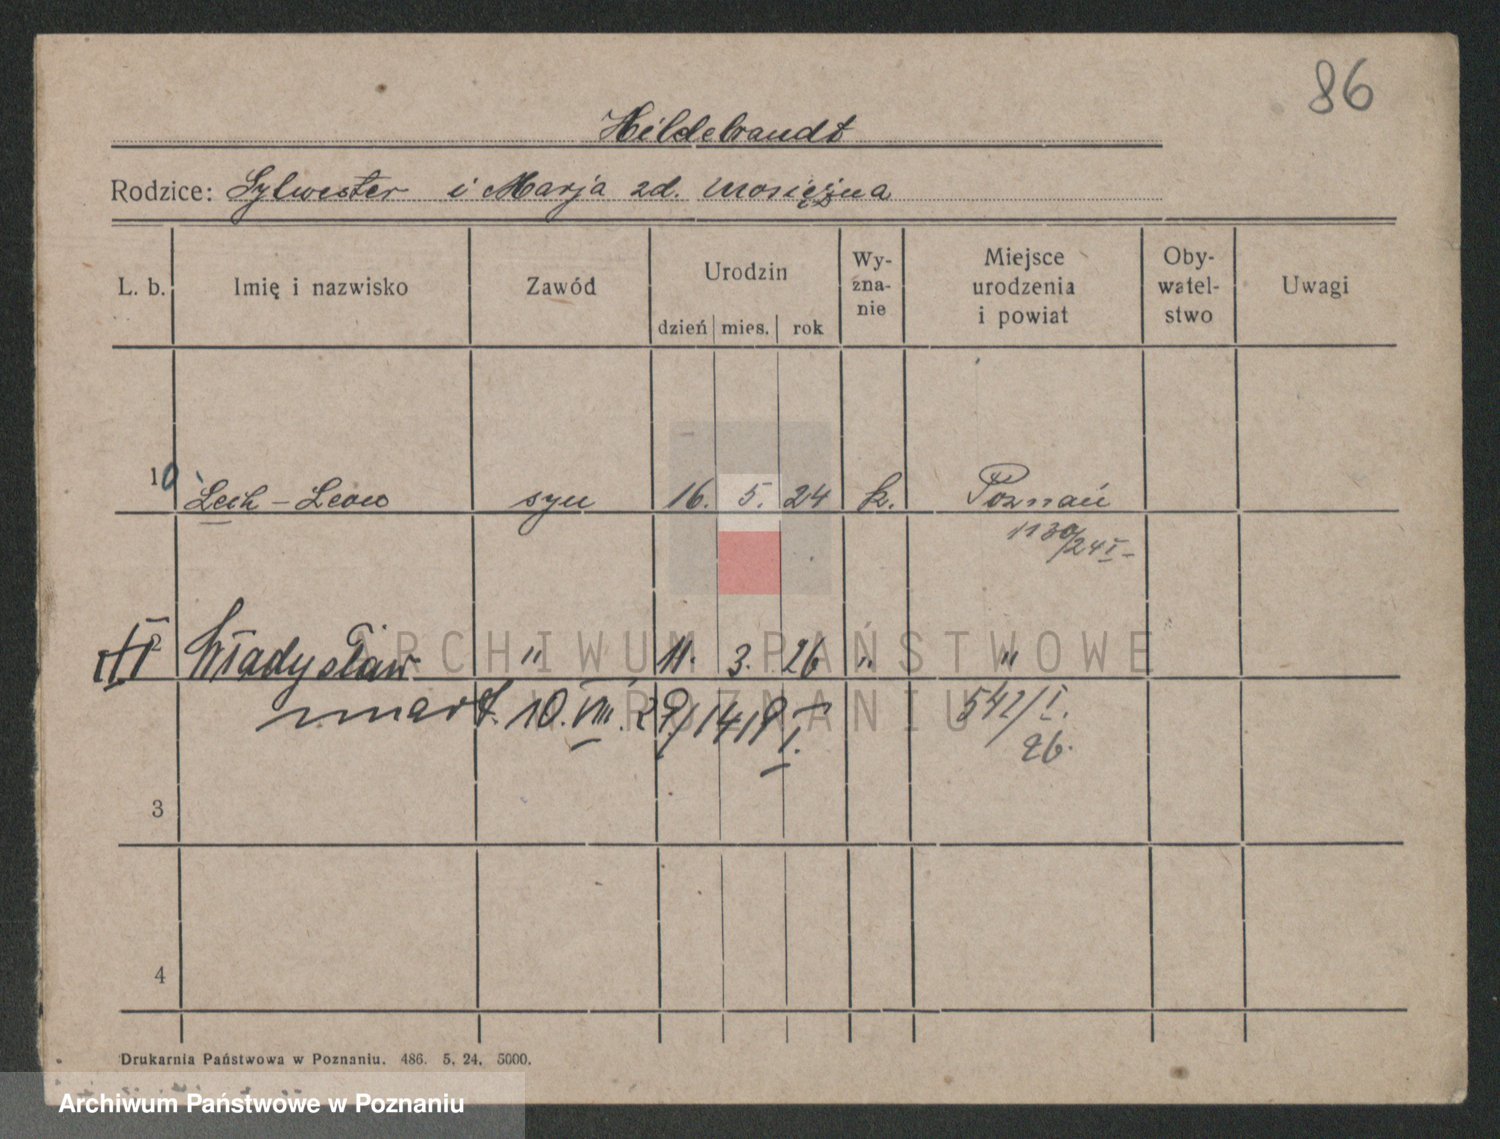 86
Hildebrandt
Rodzice: Sylwester i Marja zd. Mosiężna
L. b. Imię i nazwisko Zawód Urodzin dzień mies. rok Wy-zna-nie Miejsce urodzenia i powiat Oby-watel-stwo Uwagi
10 Lech - Leon syn 16. 5. 24 k. Poznań
1130/24 I
2 Władysław " 11. 3. 26 " "
zmarł. 10. VIII. 29/1419 I. 542/I. 26.
3
4
Drukarnia Państwowa w Poznaniu. 486. 5. 24. 5000.
ARCHIWUM PAŃSTWOWE
W POZNANIU
Archiwum Państwowe w Poznaniu